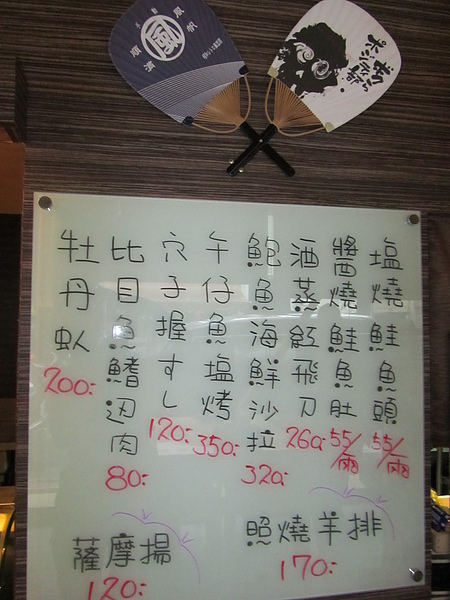 塩燒鮭魚頭
55/兩
醬燒鮭魚肚
55/兩
酒蒸紅飛刀
260
鮑魚海鮮沙拉
320
午仔魚塩烤
350:
穴子握すし
120:
比目魚鰭边肉
80:
牡丹虾
200:
照燒羊排
170:
薩摩揚
120: